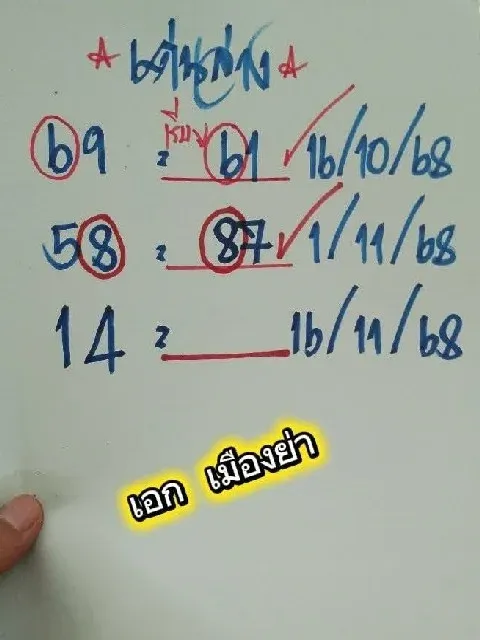 ★ เด่นล่าง ★
เริ่ม
69 = 61 ✓ 16/10/68
58 = 87 ✓ 1/11/68
14 = ____ 16/11/68
เอก เมืองย่า